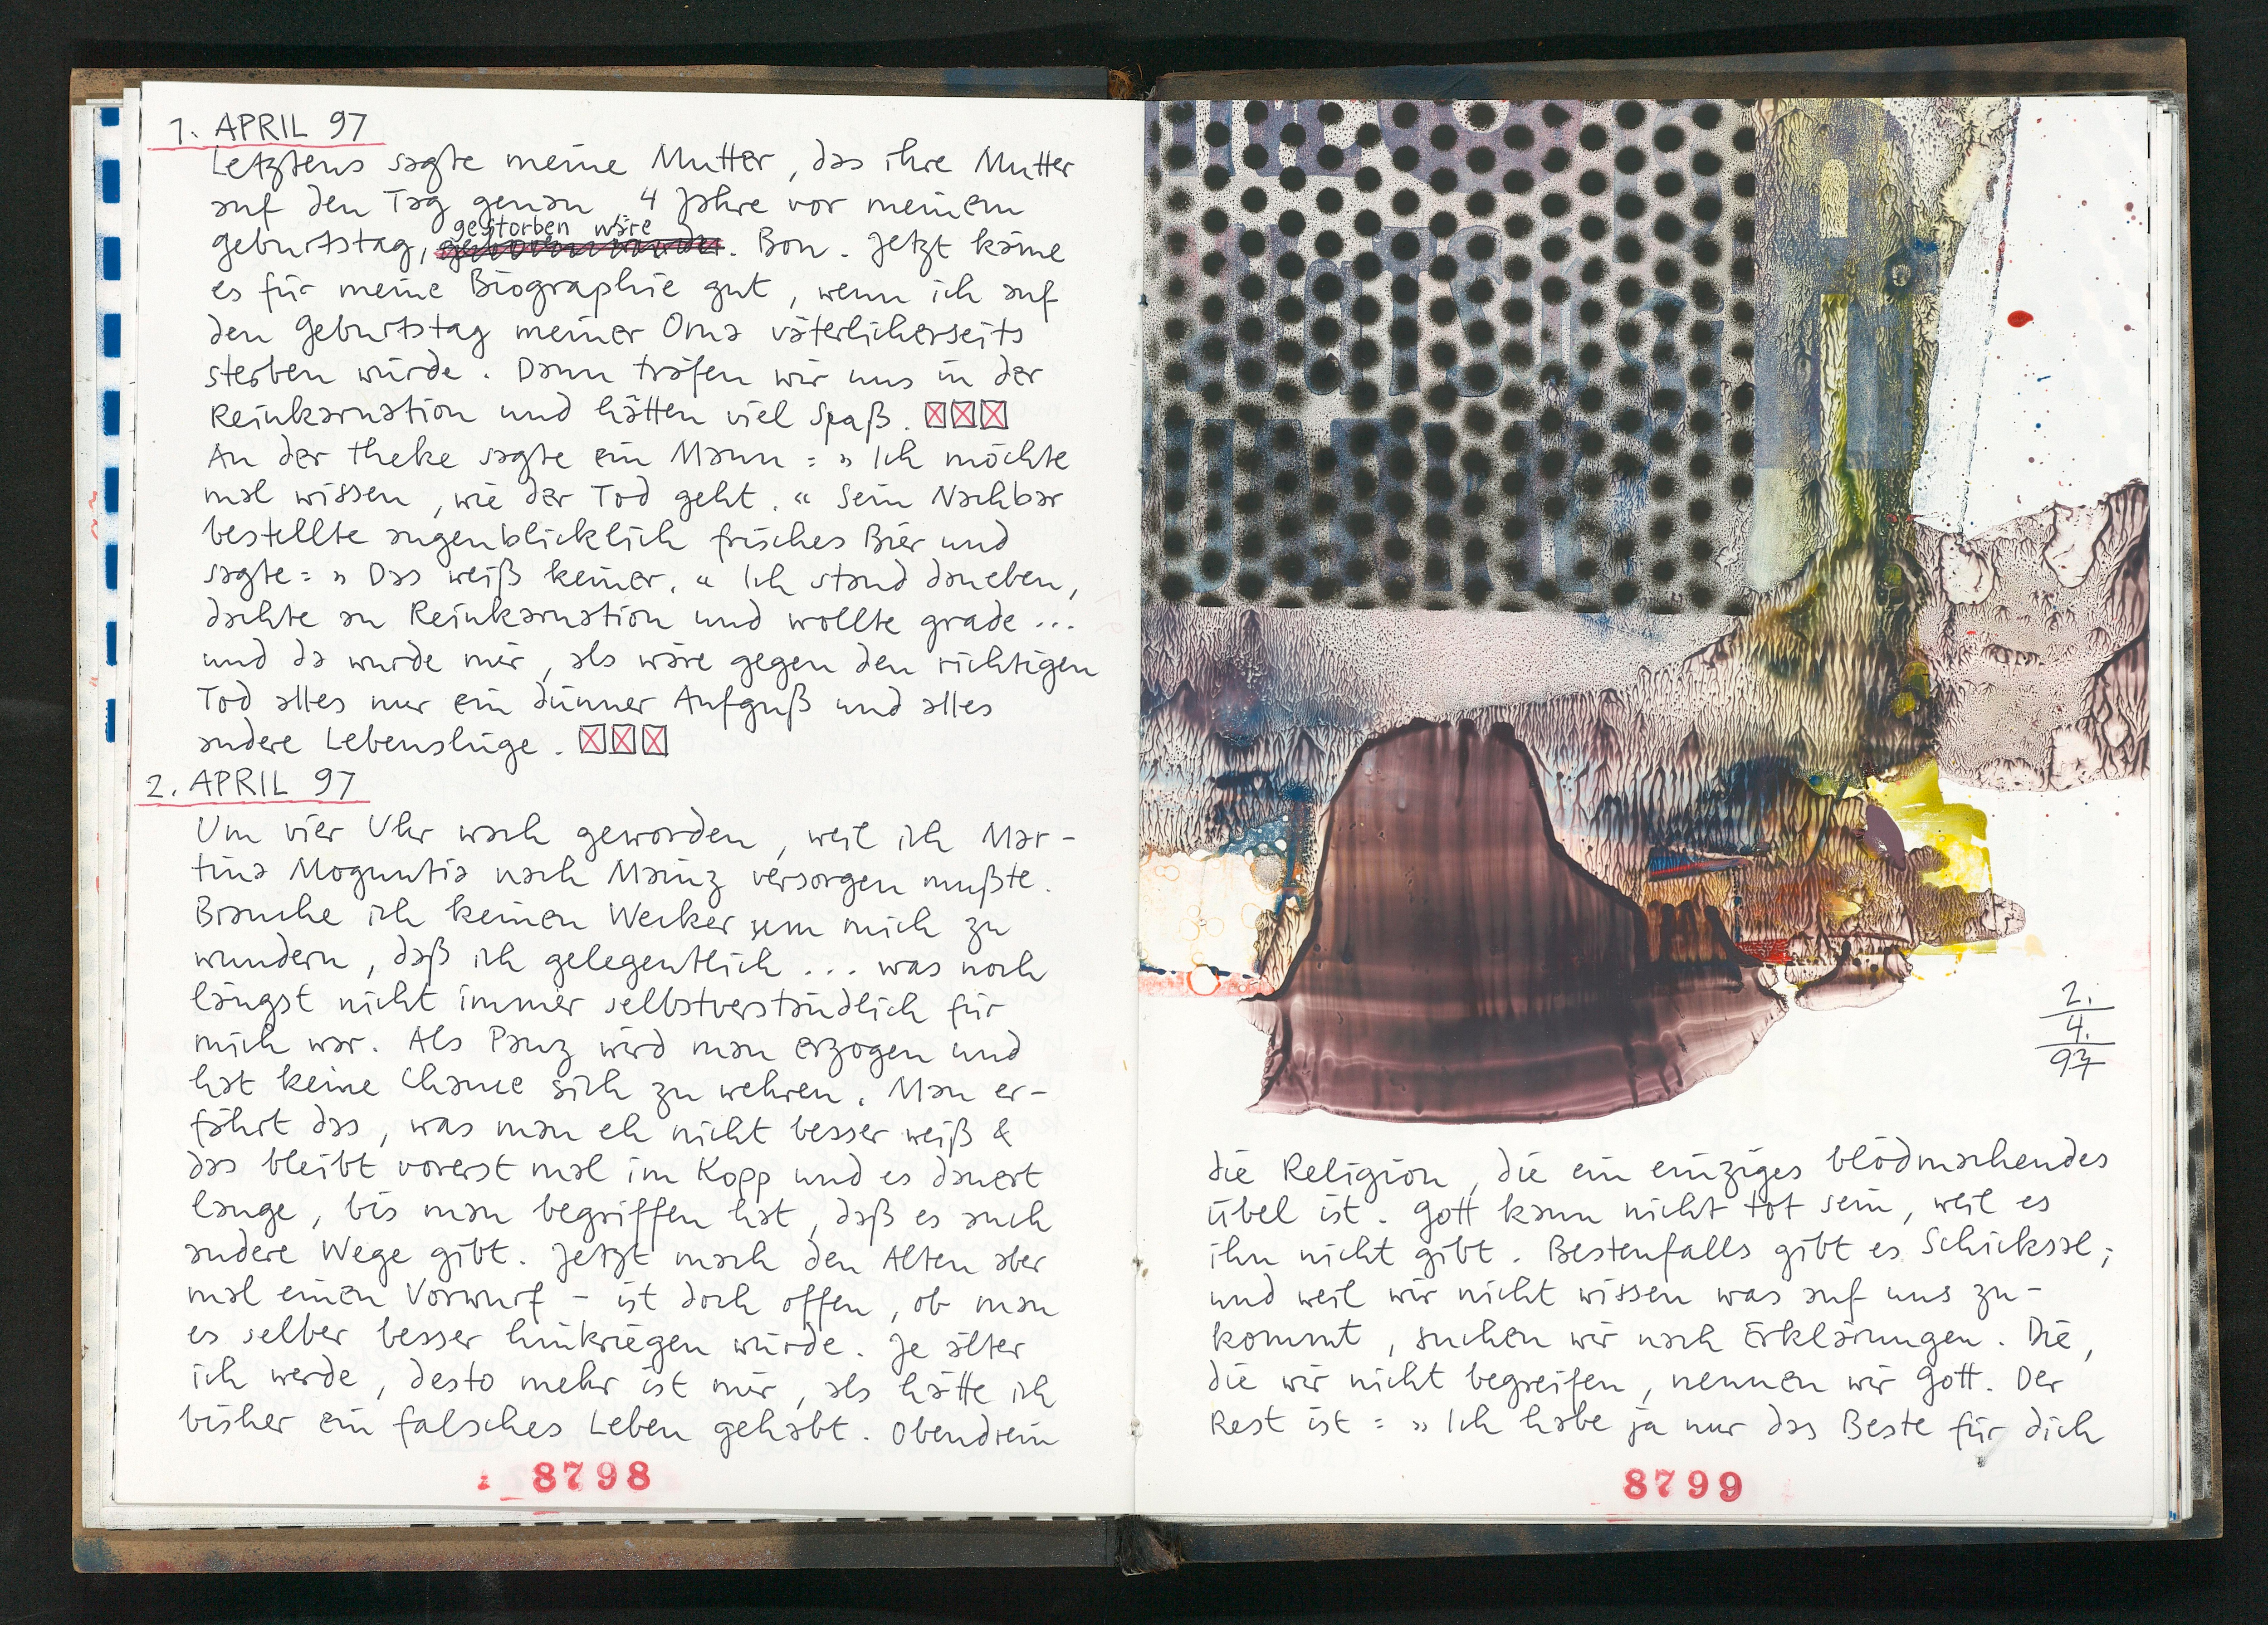 1. APRIL 97
Letztens sagte meine Mutter, das ihre Mutter
auf den Tag genau 4 Jahre vor meinem
gestorben wäre
geburtstag, . Bon. Jetzt käme
es für meine Biographie gut, wenn ich auf
den geburtstag meiner Oma väterlicherseits
sterben würde. Dann träfen wir uns in der
Reinkarnation und hätten viel Spaß.
An der Theke sagte ein Mann = » Ich möchte
mal wissen, wie der Tod geht. « Sein Nachbar
bestellte augenblicklich frisches Bier und
sagte = » Das weiß keiner. « Ich stand daneben,
dachte an Reinkarnation und wollte grade ...
und da wurde mir, als wäre gegen den richtigen
Tod alles nur ein dünner Aufguß und alles
andere Lebenslüge.
2. APRIL 97
Um vier Uhr wach geworden, weil ich Mar-
tina Moguntia nach Mainz versorgen mußte.
Brauche ich keinen Wecker um mich zu
wundern, daß ich gelegentlich ... was noch
längst nicht immer selbstverständlich für
mich war. Als Panz wird man erzogen und
hat keine Chance sich zu wehren. Man er-
fährt das, was man eh nicht besser weiß &
das bleibt vorerst mal im Kopp und es dauert
lange, bis man begriffen hat, daß es auch
andere Wege gibt. Jetzt mach den Alten aber
mal einen Vorwurf - ist doch offen, ob man
es selber besser hinkriegen würde. Je älter
ich werde, desto mehr ist mir, als hätte ich
bisher ein falsches Leben gehabt. Obendrein
8798
2.
4.
97
die Religion, die ein einziges blödmachendes
Übel ist. Gott kann nicht tot sein, weil es
ihn nicht gibt. Bestenfalls gibt es Schicksal;
und weil wir nicht wissen was auf uns zu-
kommt, suchen wir nach Erklärungen. Die,
die wir nicht begreifen, nennen wir Gott. Der
Rest ist = » Ich habe ja nur das Beste für dich
8799